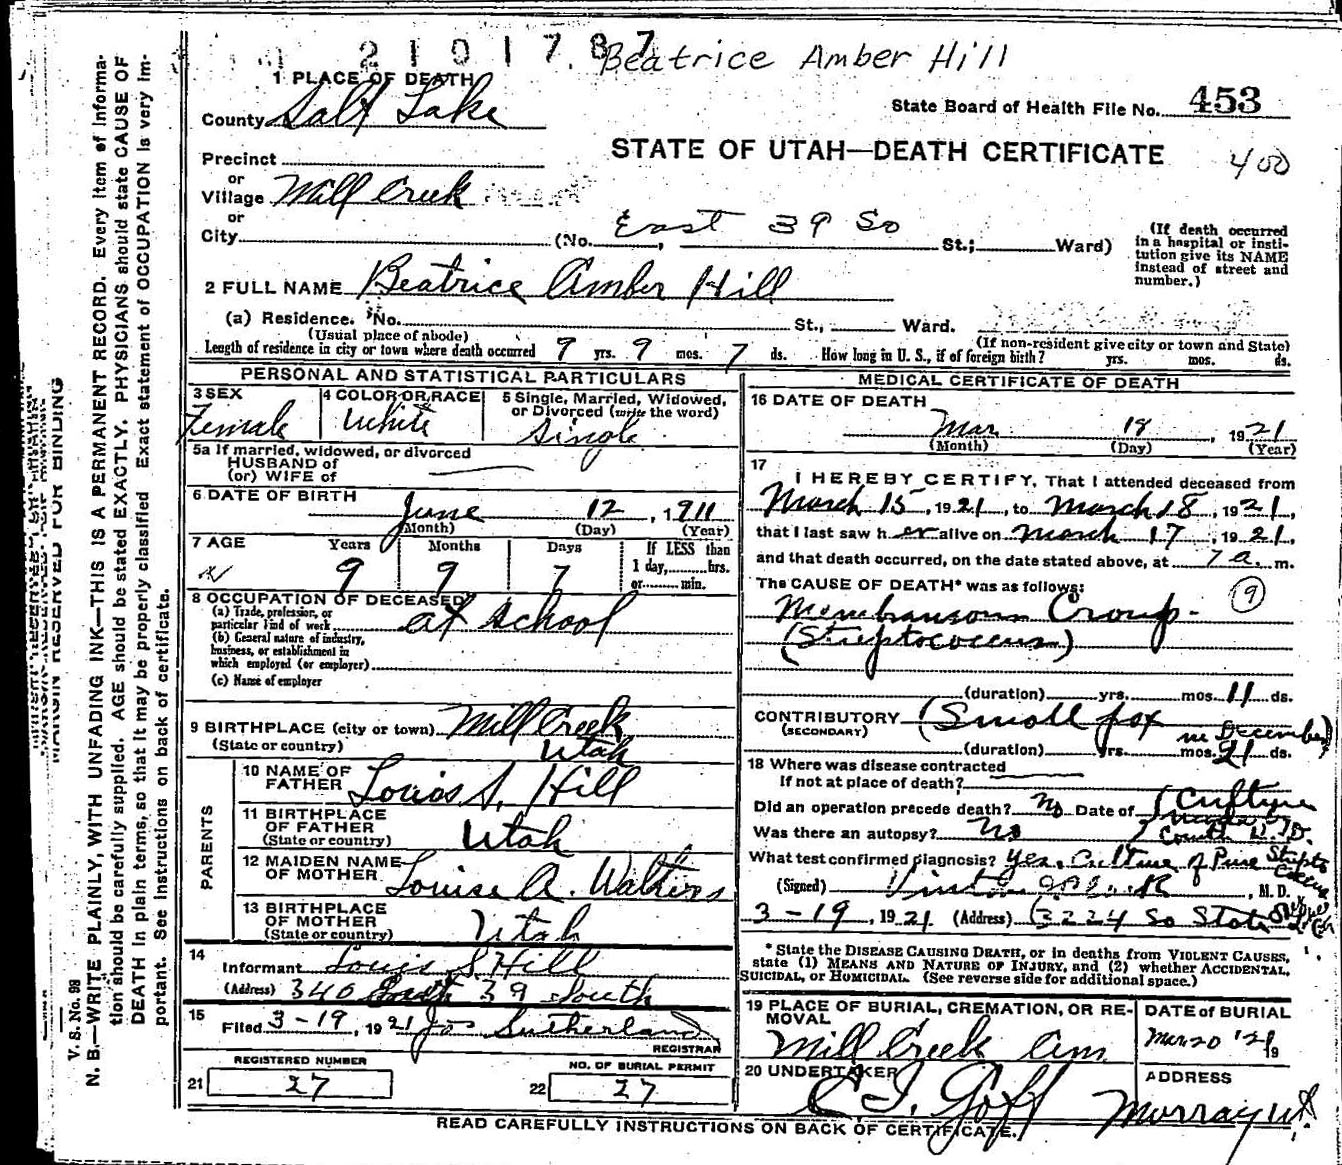 2101787. Beatrice Amber Hill
1 PLACE OF DEATH
County Salt Lake
State Board of Health File No. 453
STATE OF UTAH—DEATH CERTIFICATE
400
Precinct
or
Village Mill Creek
or
City (No. East 39 So St.; Ward)
(If death occurred in a hospital or insti-
tution give its NAME
instead of street and
number.)
2 FULL NAME Beatrice Amber Hill
(a) Residence. No. St., Ward.
(Usual place of abode) (If non-resident give city or town and State)
Length of residence in city or town where death occurred 9 yrs. 9 mos. 7 ds. How long in U. S., if of foreign birth? yrs. mos. ds.
PERSONAL AND STATISTICAL PARTICULARS
3 SEX
Female
4 COLOR OR RACE
White
5 Single, Married, Widowed,
or Divorced (write the word)
Single
5a If married, widowed, or divorced
HUSBAND of
(or) WIFE of
6 DATE OF BIRTH
June 12, 1911
(Month) (Day) (Year)
7 AGE Years Months Days If LESS than
1 day, hrs.
or min.
9 9 7
8 OCCUPATION OF DECEASED
(a) Trade, profession, or
particular kind of work at school
(b) General nature of industry,
business, or establishment in
which employed (or employer)
(c) Name of employer
9 BIRTHPLACE (city or town) Mill Creek
(State or country) Utah
PARENTS
10 NAME OF
FATHER Louis S. Hill
11 BIRTHPLACE
OF FATHER
(State or country) Utah
12 MAIDEN NAME
OF MOTHER Louise A. Walters
13 BIRTHPLACE
OF MOTHER
(State or country) Utah
14
Informant Louis S. Hill
(Address) 340 East 39 South
15
Filed 3-19, 1921 Jos Sutherland
REGISTRAR
REGISTERED NUMBER
21 27
NO. OF BURIAL PERMIT
22 27
MEDICAL CERTIFICATE OF DEATH
16 DATE OF DEATH
Mar 18, 1921
(Month) (Day) (Year)
17
I HEREBY CERTIFY, That I attended deceased from
March 15, 1921, to March 18, 1921,
that I last saw her alive on March 17, 1921,
and that death occurred, on the date stated above, at 7 a. m.
The CAUSE OF DEATH* was as follows: 9
Membranous Croup-
(Streptococcus)
(duration) yrs. mos. 11 ds.
CONTRIBUTORY (Small pox
(SECONDARY) in December)
(duration) yrs. mos. 21 ds.
18 Where was disease contracted
If not at place of death?
Did an operation precede death? No Date of
Was there an autopsy? No
What test confirmed diagnosis? Yes, Culture of Pure Strepto
(Signed) , M. D.
3-19, 1921 (Address) (3224 So State
* State the DISEASE CAUSING DEATH, or in deaths from VIOLENT CAUSES,
state (1) MEANS AND NATURE OF INJURY, and (2) whether ACCIDENTAL,
SUICIDAL, or HOMICIDAL. (See reverse side for additional space.)
19 PLACE OF BURIAL, CREMATION, OR RE-
MOVAL
Mill Creek Cem
DATE OF BURIAL
Mar 20 '21
19
20 UNDERTAKER
C. I. Goff
ADDRESS
Murray Ut.
READ CAREFULLY INSTRUCTIONS ON BACK OF CERTIFICATE.
MARGIN RESERVED FOR BINDING
V. S. No. 98
N. B.—WRITE PLAINLY, WITH UNFADING INK—THIS IS A PERMANENT RECORD. Every item of informa-
tion should be carefully supplied. AGE should be stated EXACTLY. PHYSICIANS should state CAUSE OF
DEATH in plain terms, so that it may be properly classified. Exact statement of OCCUPATION is very im-
portant. See instructions on back of certificate.